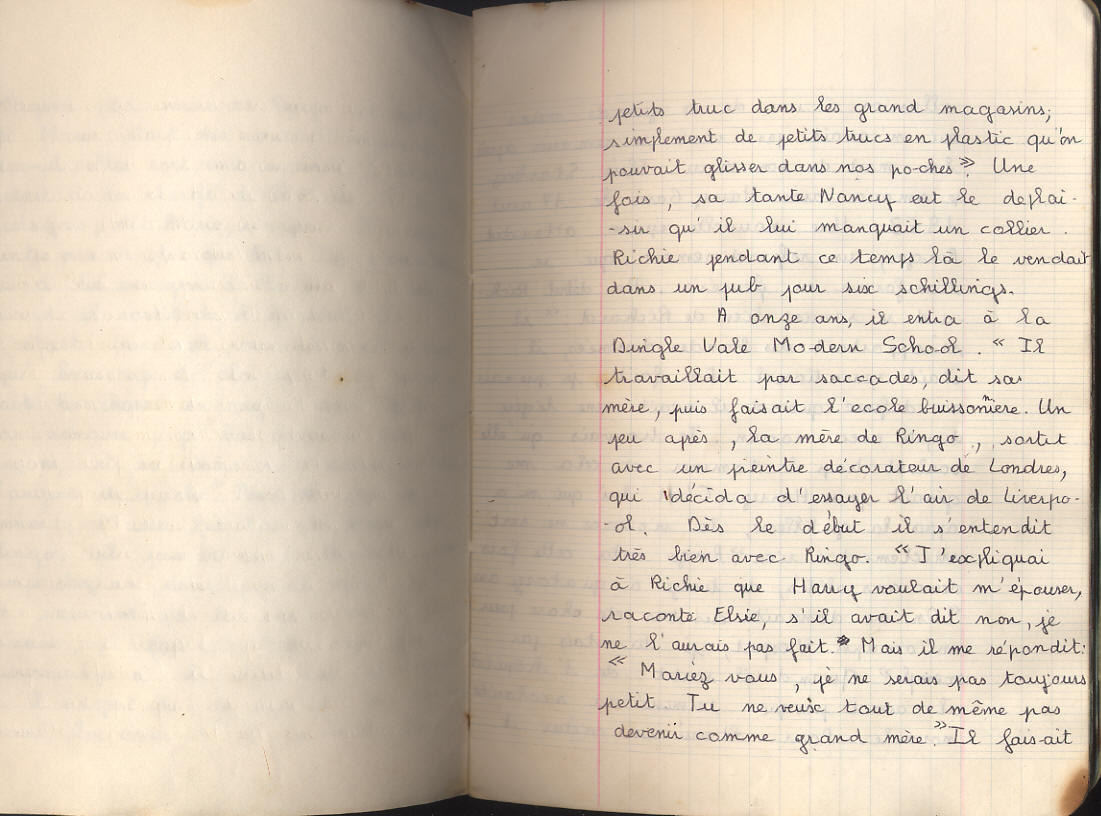 petits truc dans les grand magasins;
simplement de petits trucs en plastic qu'on
pouvait glisser dans nos po-ches ». Une
fois, sa tante Nancy eut le deplai-
-sir qu'il lui manquait un collier.
Richie pendant ce temps là le vendait
dans un pub pour six schillings.
A onze ans, il entra à la
Dingle Vale Modern School. « Il
travaillait par saccades, dit sa
mère, puis faisait l'ecole buissonière. Un
peu après, la mère de Ringo, sortit
avec un peintre décorateur de Londres,
qui décida d'essayer l'air de Liverpo-
-ol. Dès le début il s'entendit
très bien avec Ringo. « J'expliquai
à Richie que Harry voulait m'épouser,
raconte Elsie, s'il avait dit non, je
ne l'aurais pas fait. Mais il me répondit:
« Mariez vous, je ne serais pas toujours
petit. Tu ne veux tout de même pas
devenir comme grand mère.» Il fais-ait